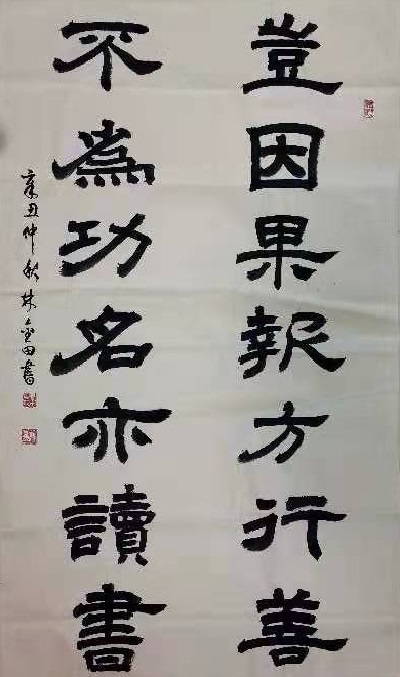 豈因果報方行善
不為功名亦讀書
辛丑仲秋林金田書